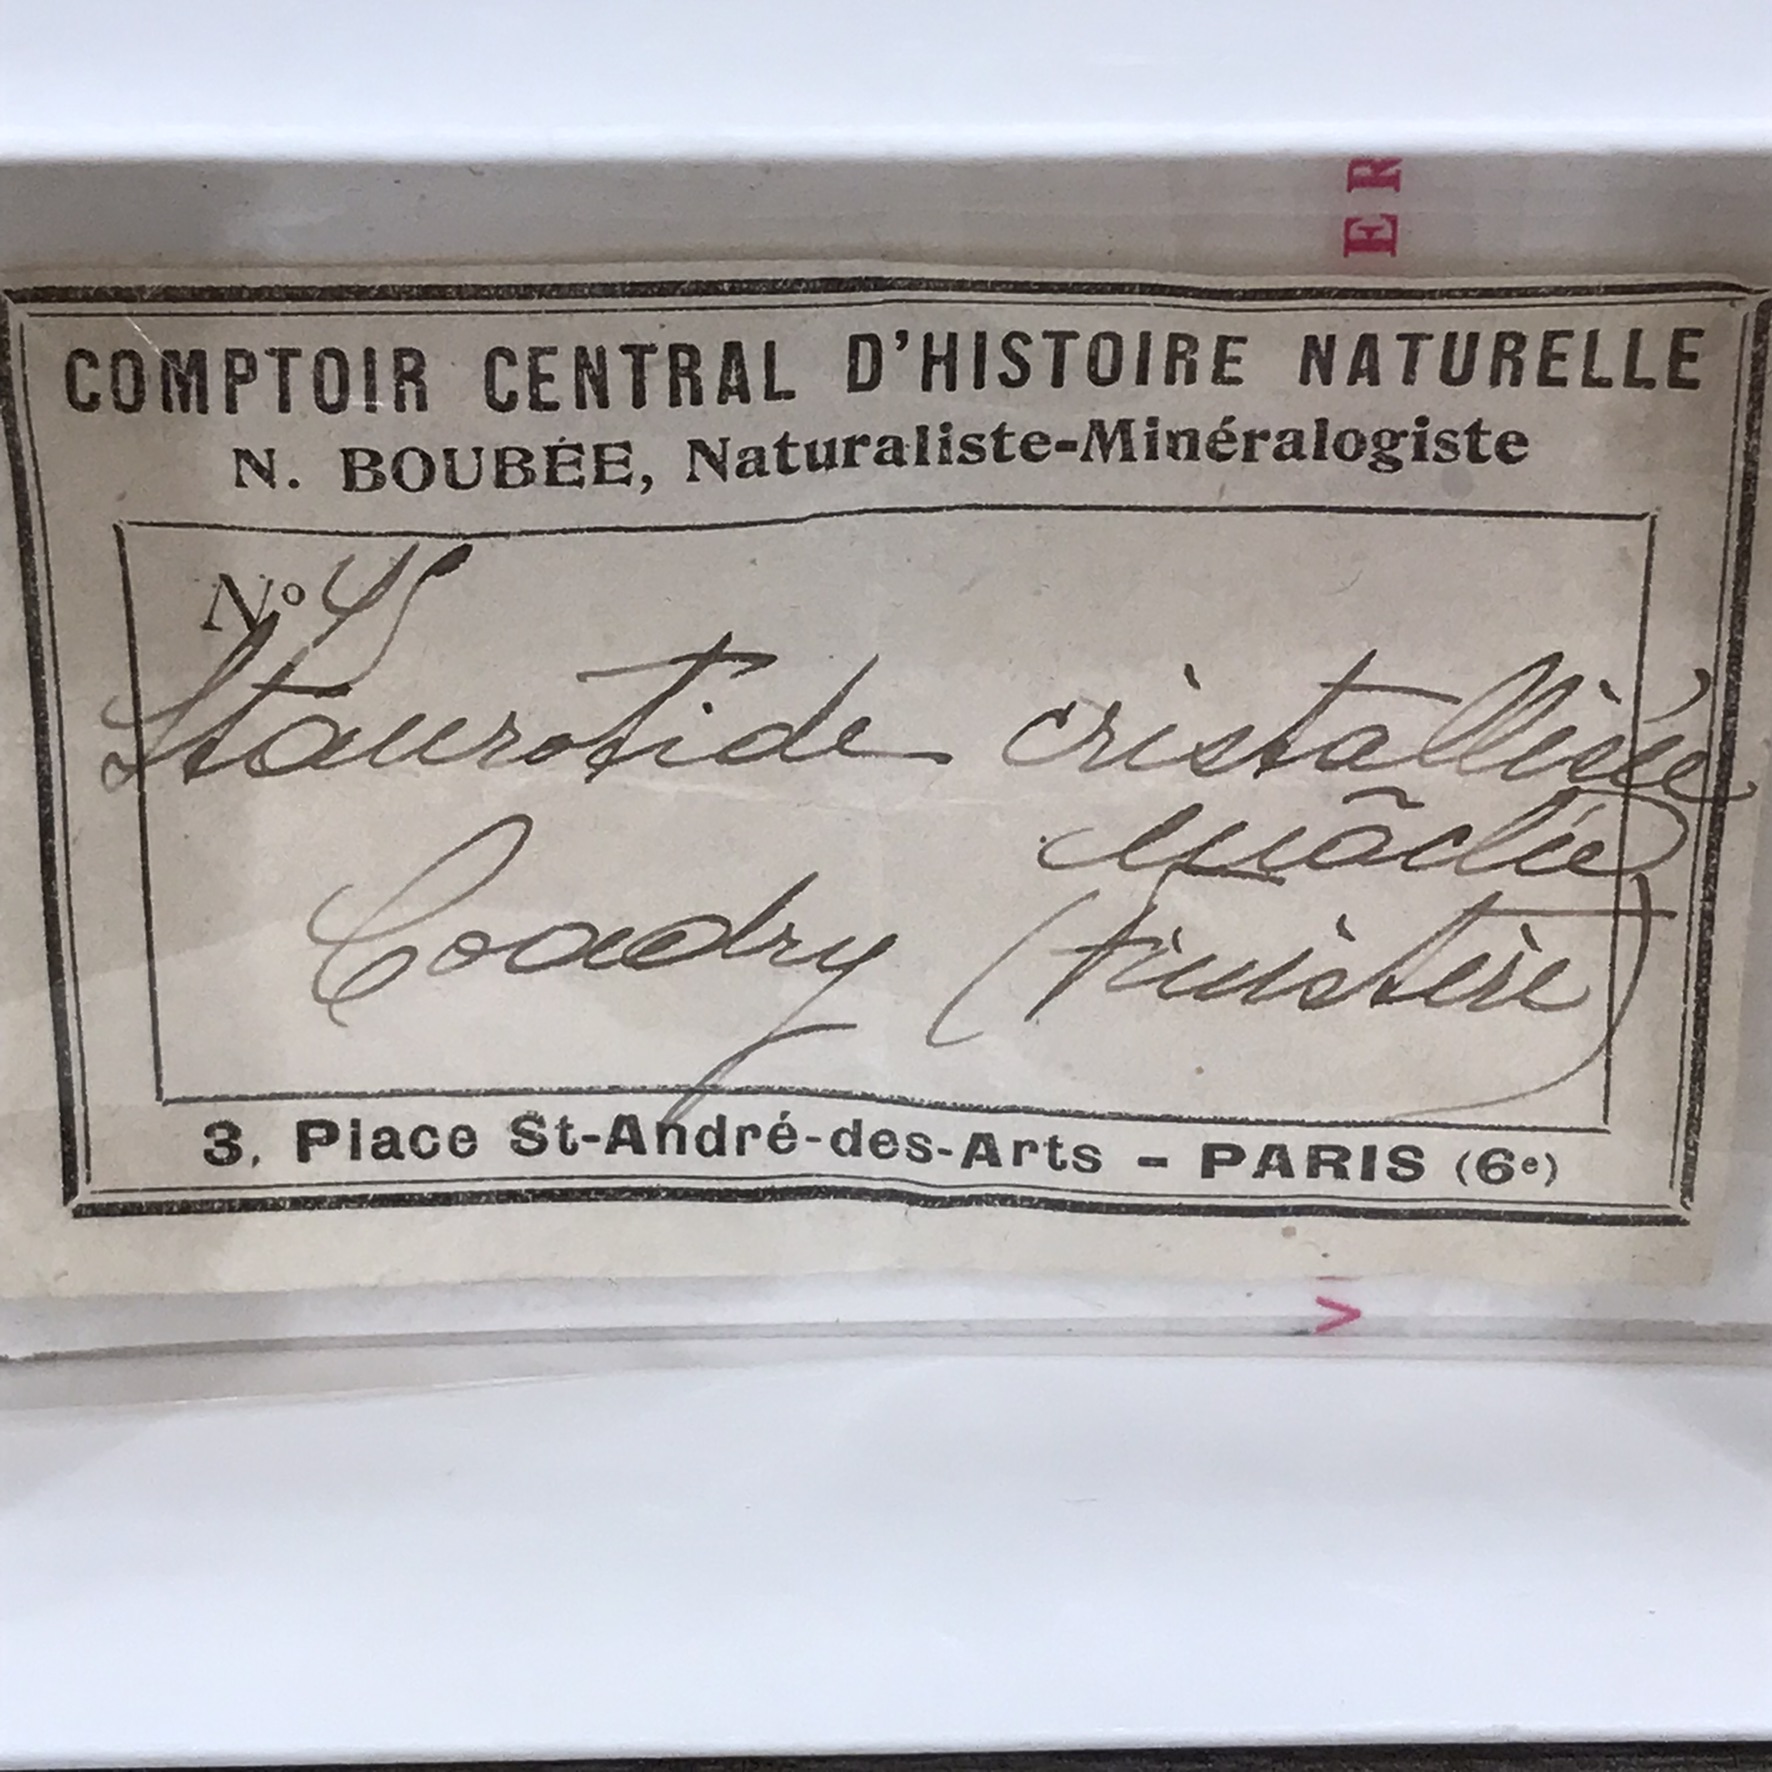 ER
COMPTOIR CENTRAL D'HISTOIRE NATURELLE
N. BOUBÉE, Naturaliste-Minéralogiste
Nº 45
Staurotide cristallisée
mâclée
Coadry (Finistère)
3, Place St-André-des-Arts - PARIS (6e)
V